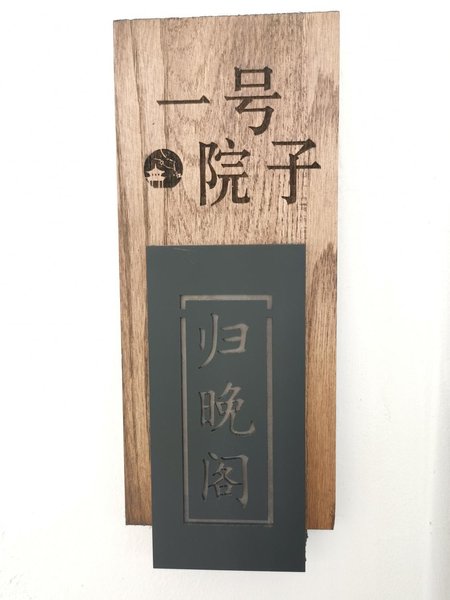 一号
院子
归晚阁